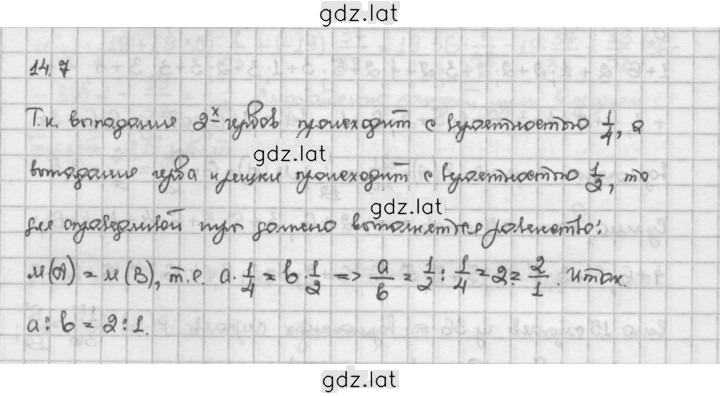 gdz.lat
14.7
Т.к. выпадание 2-х гербов происходит с вероятностью 1/4, а
gdz.lat
выпадание герба и решки происходит с вероятностью 1/2, то
gdz.lat
для справедливой игры должно выполняться равенство:
M(A) = M(B), т.е. a·1/4 = b·1/2 => a/b = 1/2 : 1/4 = 2 = 2/1. Итак
a : b = 2 : 1.
gdz.lat